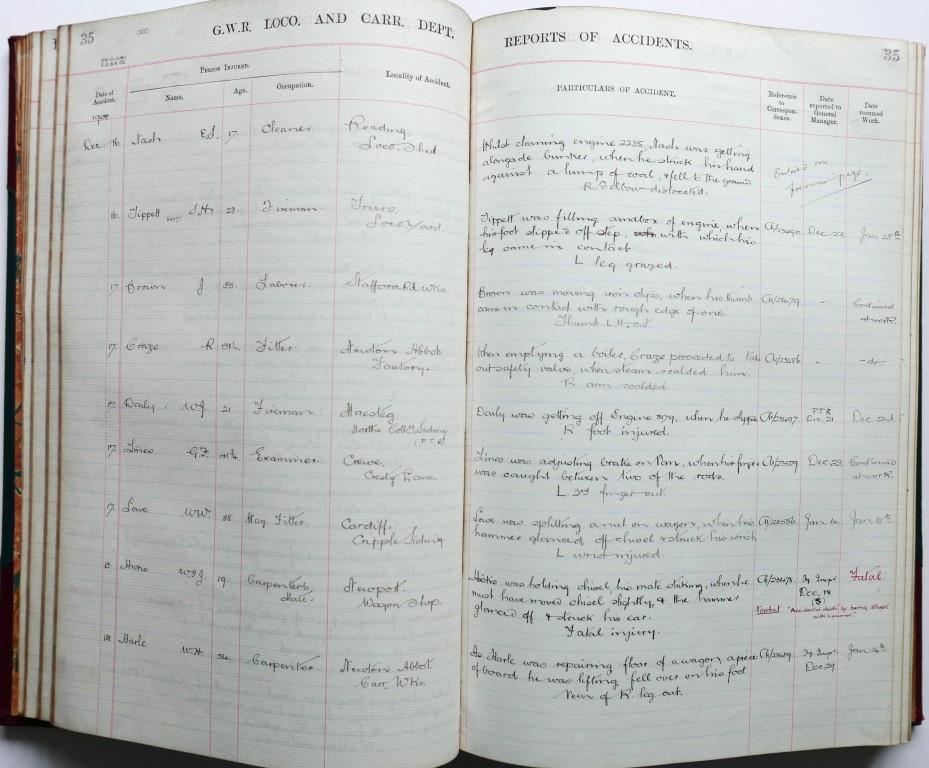 35
(237)
G.W.R. LOCO. AND CARR. DEPT.
Date of Accident.
PERSON INJURED.
Name.
Age.
Occupation.
Locality of Accident.
1908
Dec 16 Nash Ed. 17 Cleaner Reading,
Loco. Shed
16 Tippett S.H. 22 Fireman Truro,
Loco Yard.
17 Brown J 35 Laborer Stafford Rd Wks.
17 Craze R Fitter Newton Abbot
Factory.
17 Daily W.J. 21 Fireman Maesteg,
Norths Coll'y Siding
(P.T.R)
17 Lines G.F. Examiner Crewe,
Gresty Lane.
17 Lowe W.W. 38 Wag. Fitter. Cardiff,
Cripple Siding
18 Hicks W.J.J. 19 Carpenter's
Mate. Newport.
Wagon Shop.
18 Harle W.H. 54 Carpenter Newton Abbot.
Carr. Wks.
REPORTS OF ACCIDENTS.
35
PARTICULARS OF ACCIDENT.
Reference to Correspondence.
Date reported to General Manager.
Date resumed Work.
Whilst cleaning engine 2235, Nash was getting
alongside bunker, when he struck his hand
against a lump of coal, & fell to the ground
R Elbow dislocated.
Entered on
previous page.
Tippett was filling sandbox of engine, when
his foot slipped off step, with which his
leg came in contact
L leg grazed.
Dec 22 Jan 28th
Brown was moving iron clips, when his thumb
came in contact with rough edge of one
Thumb L.H. cut
Ch/23479 - Continued
at work.
When emptying a boiler, Craze proceeded to take
out safety valve, when steam scalded him
R arm scalded.
- -do-
Daily was getting off Engine 3179, when he slipped
R foot injured.
Ch/23497. P.T.R
Dec 21.
Lines was adjusting brake on Van, when his finger
was caught between two of the rods.
L 3rd finger cut.
Dec 23 Continued
at work.
Lowe was splitting a nut on wagon, when his
hammer glanced off chisel & struck his wrist
L wrist injured.
Hicks was holding chisel, his mate striking, when he
must have moved chisel slightly, & the hammer
glanced off & struck his ear.
Fatal injury.
Ch/23478. Dec. 18
(S)
Fatal.
Verdict. "Accidental death by being struck
with hammer."
As Harle was repairing floor of a wagon, a piece
of board he was lifting fell over on his foot
Vein of R. leg cut.